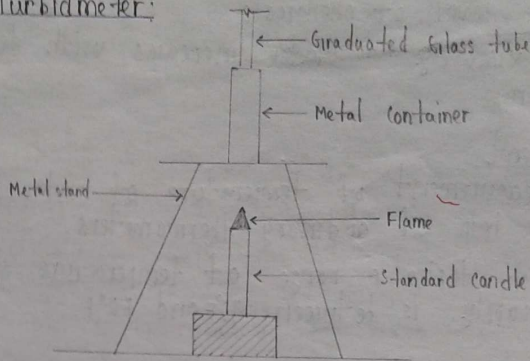 Turbidmeter:
Graduated Glass tube
Metal container
Metal stand
Flame
Standard candle